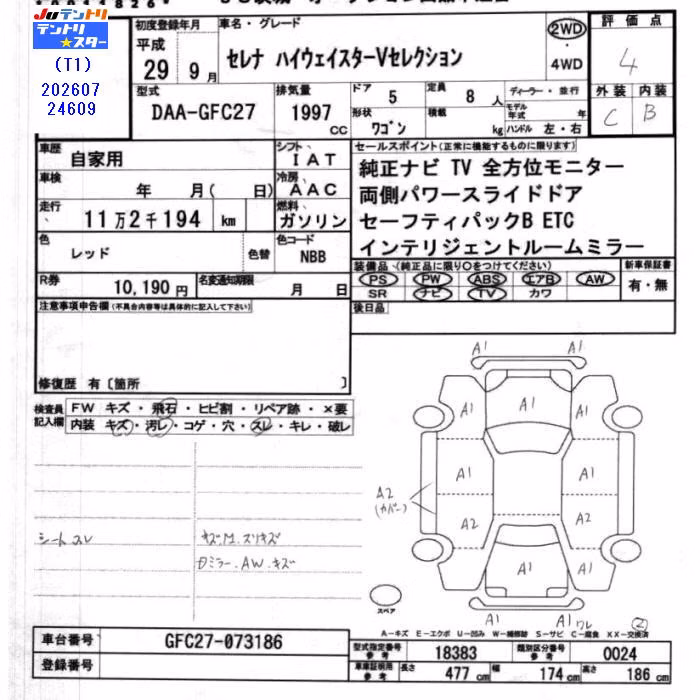 JUテントリ
テントリ★スター
(T1)
202607
24609
初度登録年月
平成
29 9月
車名・グレード
セレナ ハイウェイスターVセレクション
2WD
・
4WD
評価点
4
外装 内装
C B
型式
DAA-GFC27
排気量
1997
CC
ドア 5
定員 8人
ディーラー・並行
形状 ワゴン
積載 kg
モデル年式 年
ハンドル 左・右
車歴 自家用
シフト IAT
車検 年 月( 日)
冷房 AAC
走行 11万2千194 km
燃料 ガソリン
色 レッド 色替
色コード NBB
R券 10,190円
名変通知期限 月 日
セールスポイント(正常に機能するものに限ります)
純正ナビ TV 全方位モニター
両側パワースライドドア
セーフティパックB ETC
インテリジェントルームミラー
装備品(純正品に限り○をつけてください)
PS PW ABS エアB AW
SR ナビ TV カワ
新車保証書
有・無
後日品
注意事項申告欄(不具合内容等は具体的に記入して下さい)
修復歴 有〔箇所 〕
検査員記入欄
FW キズ・飛石・ヒビ割・リペア跡・×要
内装 キズ・汚レ・コゲ・穴・スレ・キレ・破レ
シートスレ
キズM.スリキズ
Dミラー.AW.キズ
A1 A1
A1 A1 A1
A1 A1
A2
(カバー)
A2 A2
A1 A1 A1
スペア
A1 A1ワレ
②
A-キズ E-エクボ U-凹み W-補修跡 S-サビ C-腐食 XX-交換済
車台番号 GFC27-073186
登録番号
型式指定番号 参考 18383
類別区分番号 参考 0024
車庫証明用 参考 長さ 477cm 幅 174cm 高さ 186cm